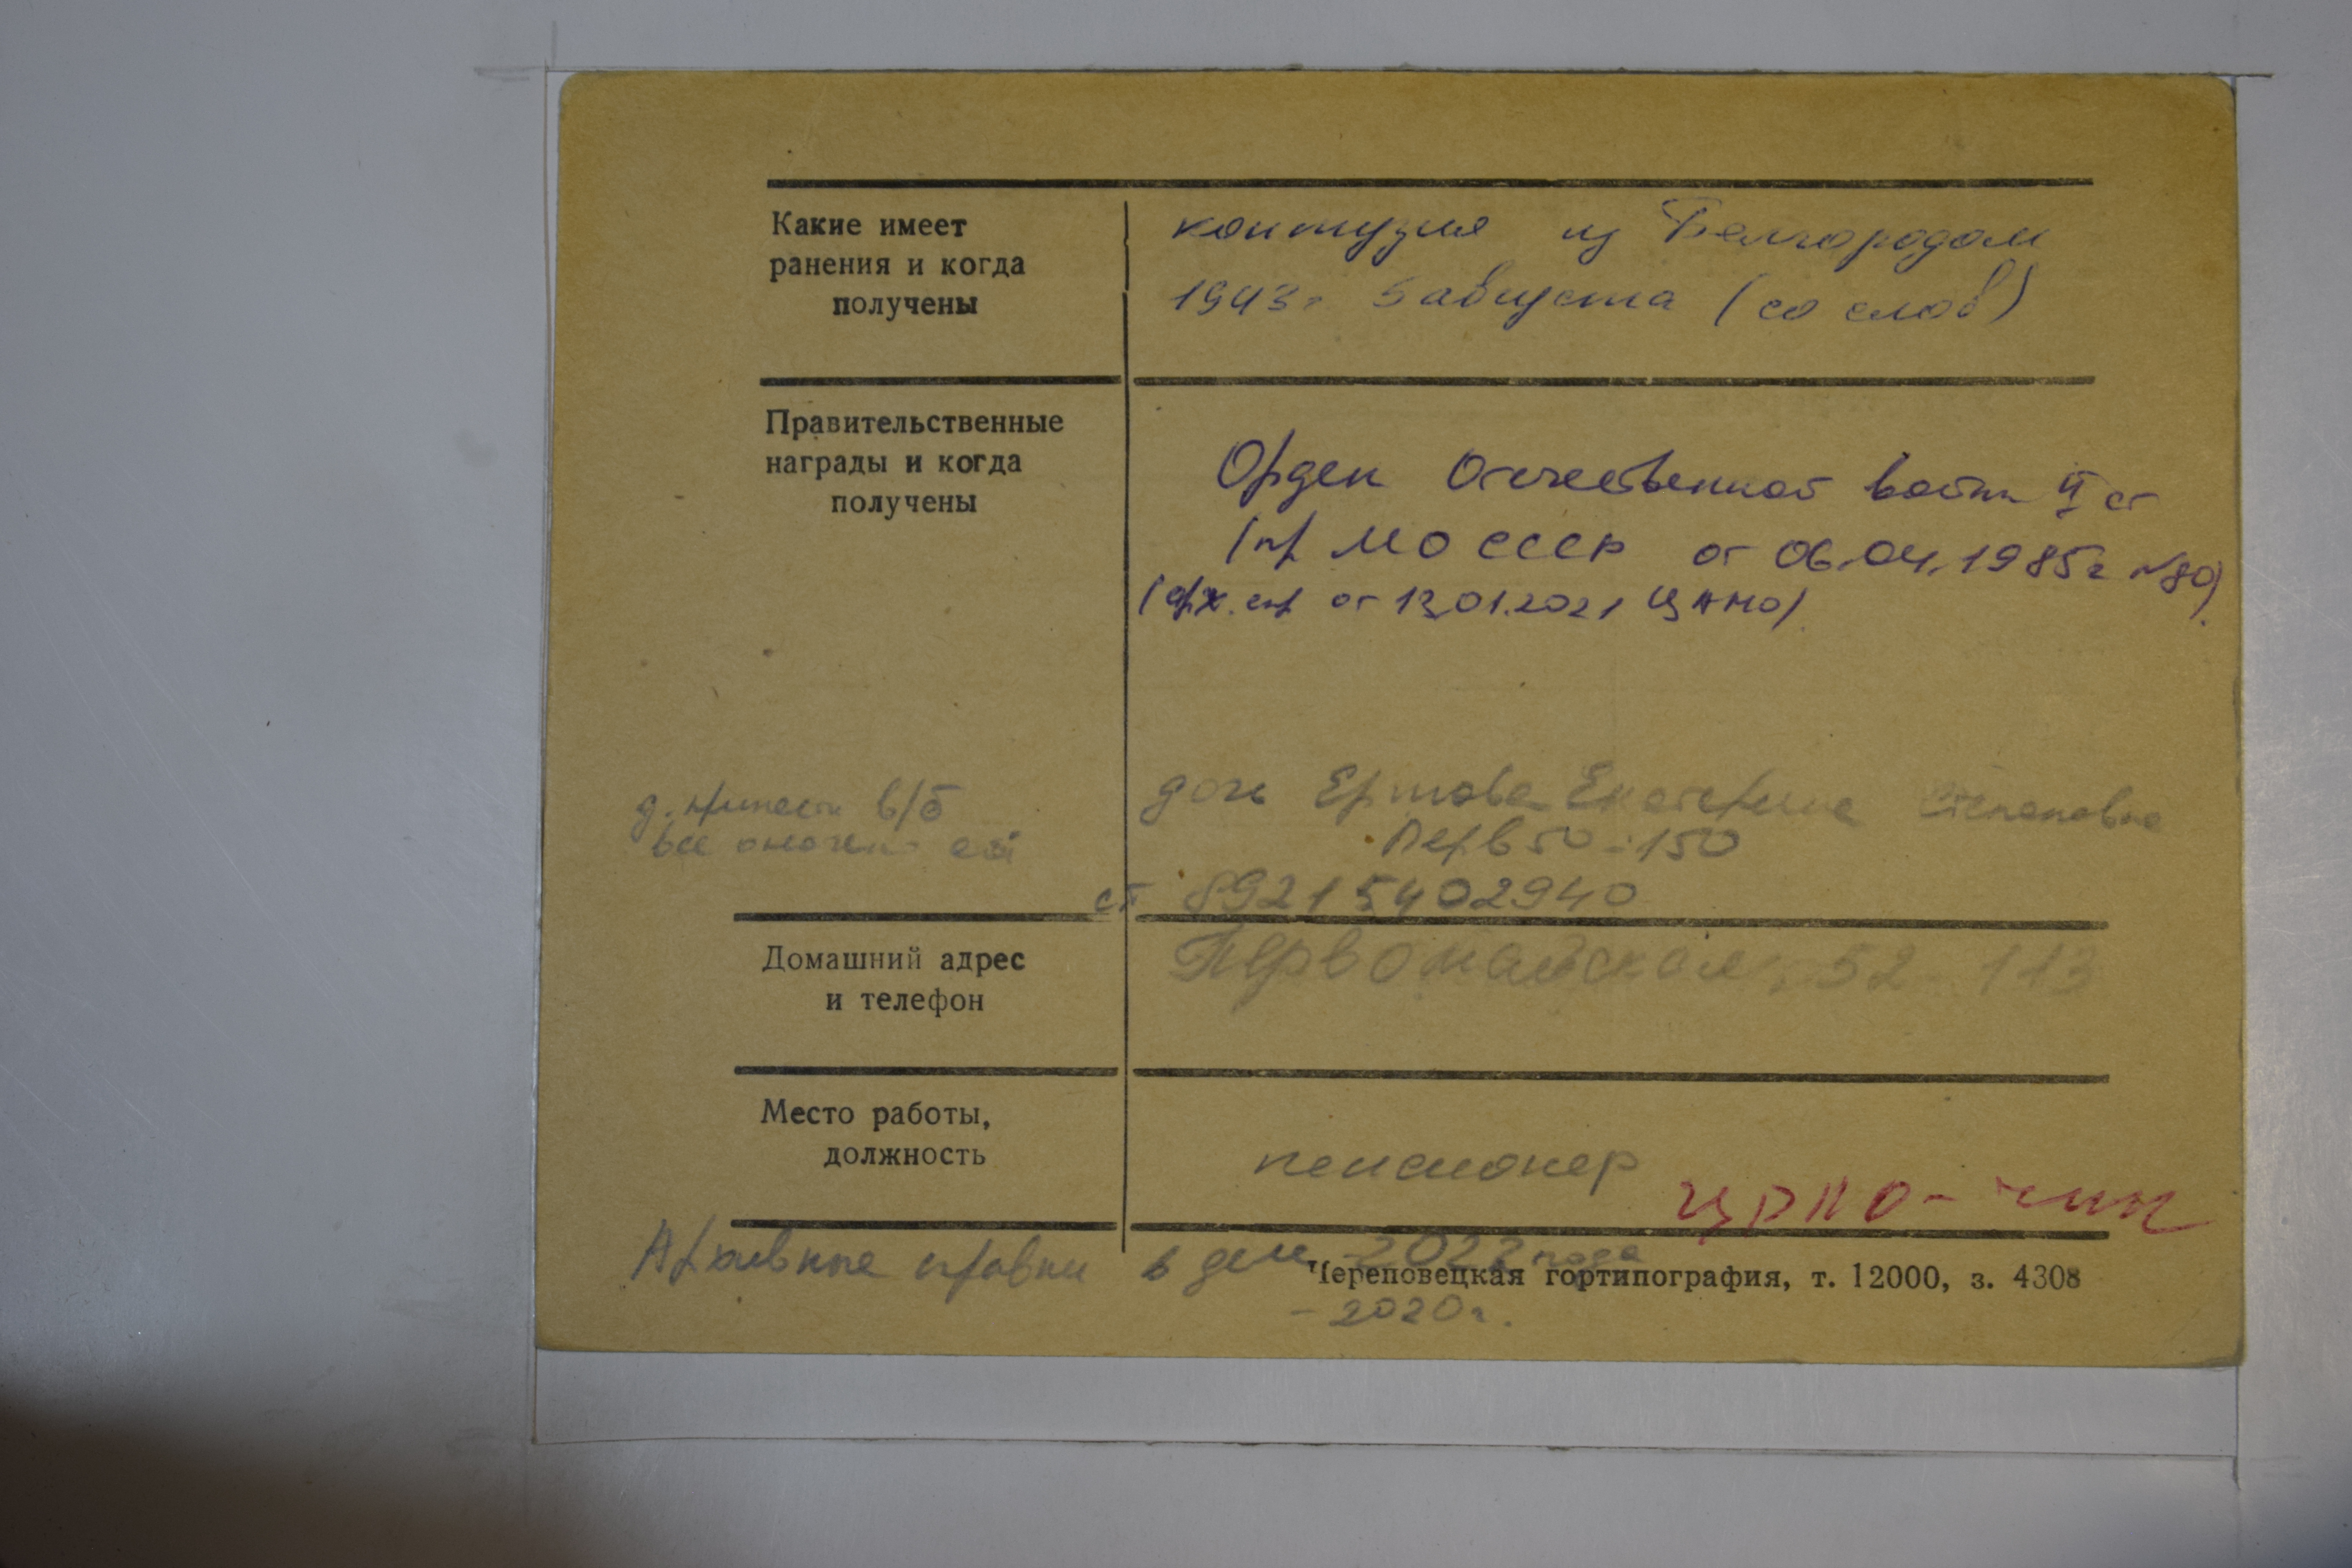 Какие имеет
ранения и когда
получены
контузия из Белгородом
1943г 5 августа (со слов)
Правительственные
награды и когда
получены
Орден Отечественной войны II ст
(пр МО СССР от 06.04.1985г №80)
(арх. спр от 13.01.2021 ЦАМО)
дочь Екатерина Степановна
Перв 50-150
ст 89215402940
в/б
все
Домашний адрес
и телефон
Первомайская, 52-113
Место работы,
должность
пенсионер
Архивные справки в деле 2022 года
Череповецкая гортипография, т. 12000, з. 4308
- 2020г.